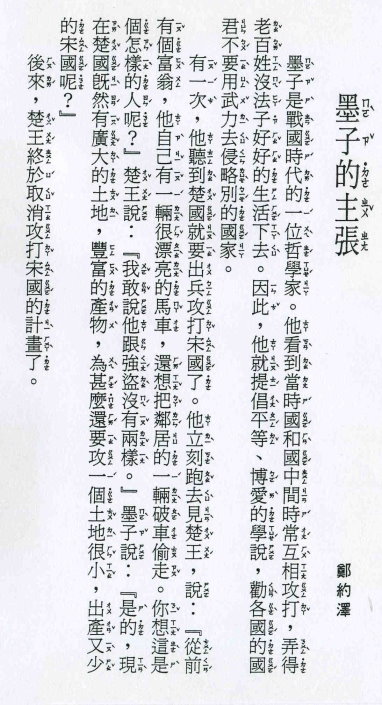 墨子的主張
鄭約澤
墨子是戰國時代的一位哲學家。他看到當時國和國中間時常互相攻打，弄得
老百姓沒法子好好的生活下去。因此，他就提倡平等、博愛的學說，勸各國的國
君不要用武力去侵略別的國家。
有一次，他聽到楚國就要出兵攻打宋國了。他立刻跑去見楚王，說：『從前
有個富翁，他自己有一輛很漂亮的馬車，還想把鄰居的一輛破車偷走。你想這是
個怎樣的人呢？』楚王說：『我敢說他跟強盜沒有兩樣。』墨子說：『是的，現
在楚國既然有廣大的土地，豐富的產物，為甚麼還要攻一個土地很小，出產又少
的宋國呢？』
後來，楚王終於取消攻打宋國的計畫了。